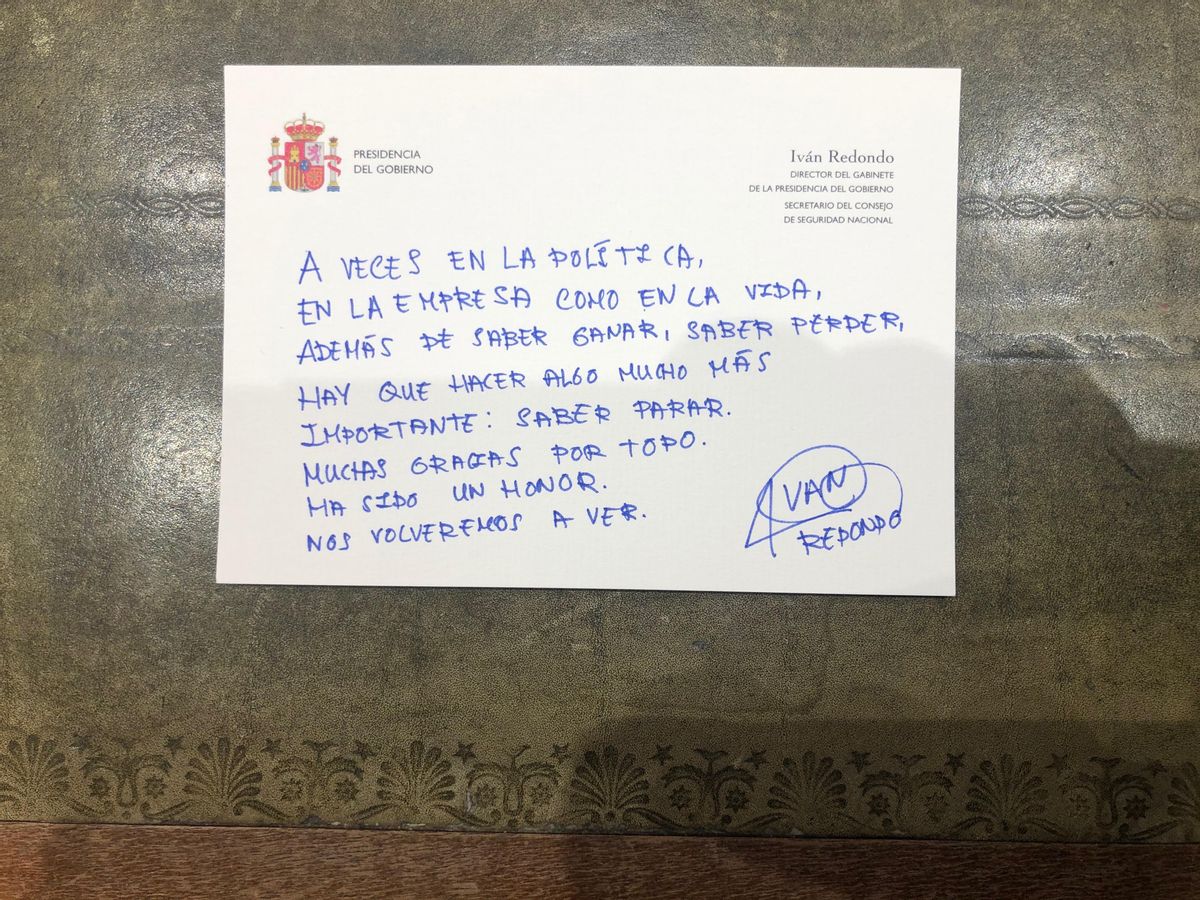 PRESIDENCIA
DEL GOBIERNO
Iván Redondo
DIRECTOR DEL GABINETE
DE LA PRESIDENCIA DEL GOBIERNO
SECRETARIO DEL CONSEJO
DE SEGURIDAD NACIONAL
A VECES EN LA POLÍTICA,
EN LA EMPRESA COMO EN LA VIDA,
ADEMÁS DE SABER GANAR, SABER PERDER,
HAY QUE HACER ALGO MUCHO MÁS
IMPORTANTE: SABER PARAR.
MUCHAS GRACIAS POR TODO.
HA SIDO UN HONOR.
NOS VOLVEREMOS A VER.
IVAN
REDONDO